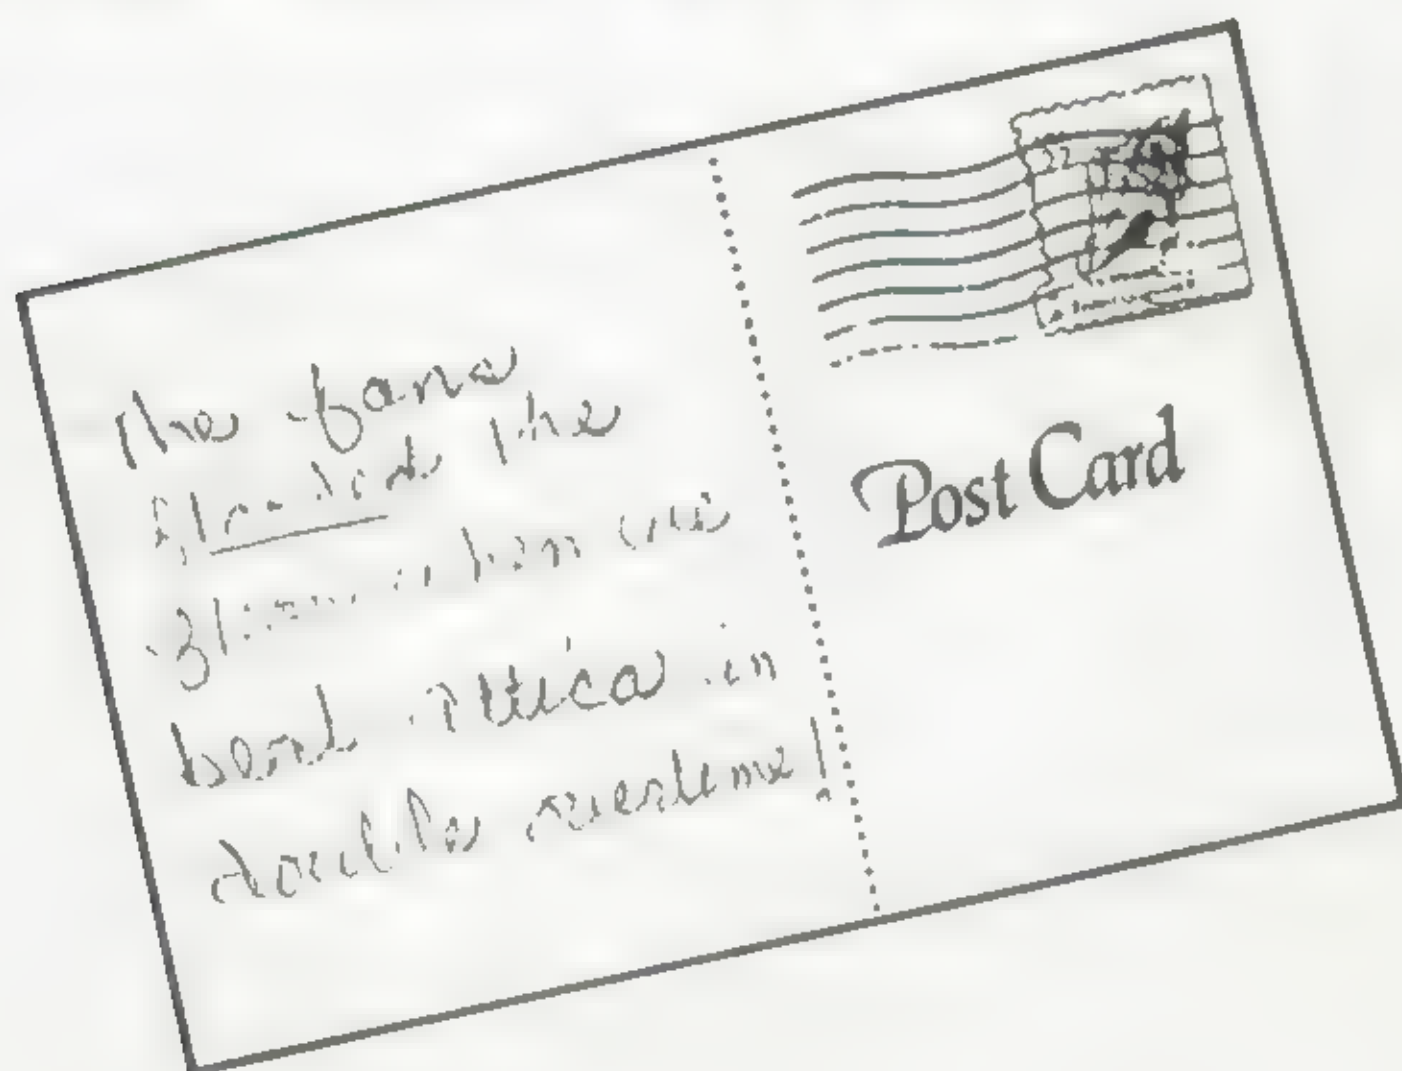 The fans
flooded the
floor when we
beat Attica in
double overtime!
22
Post Card